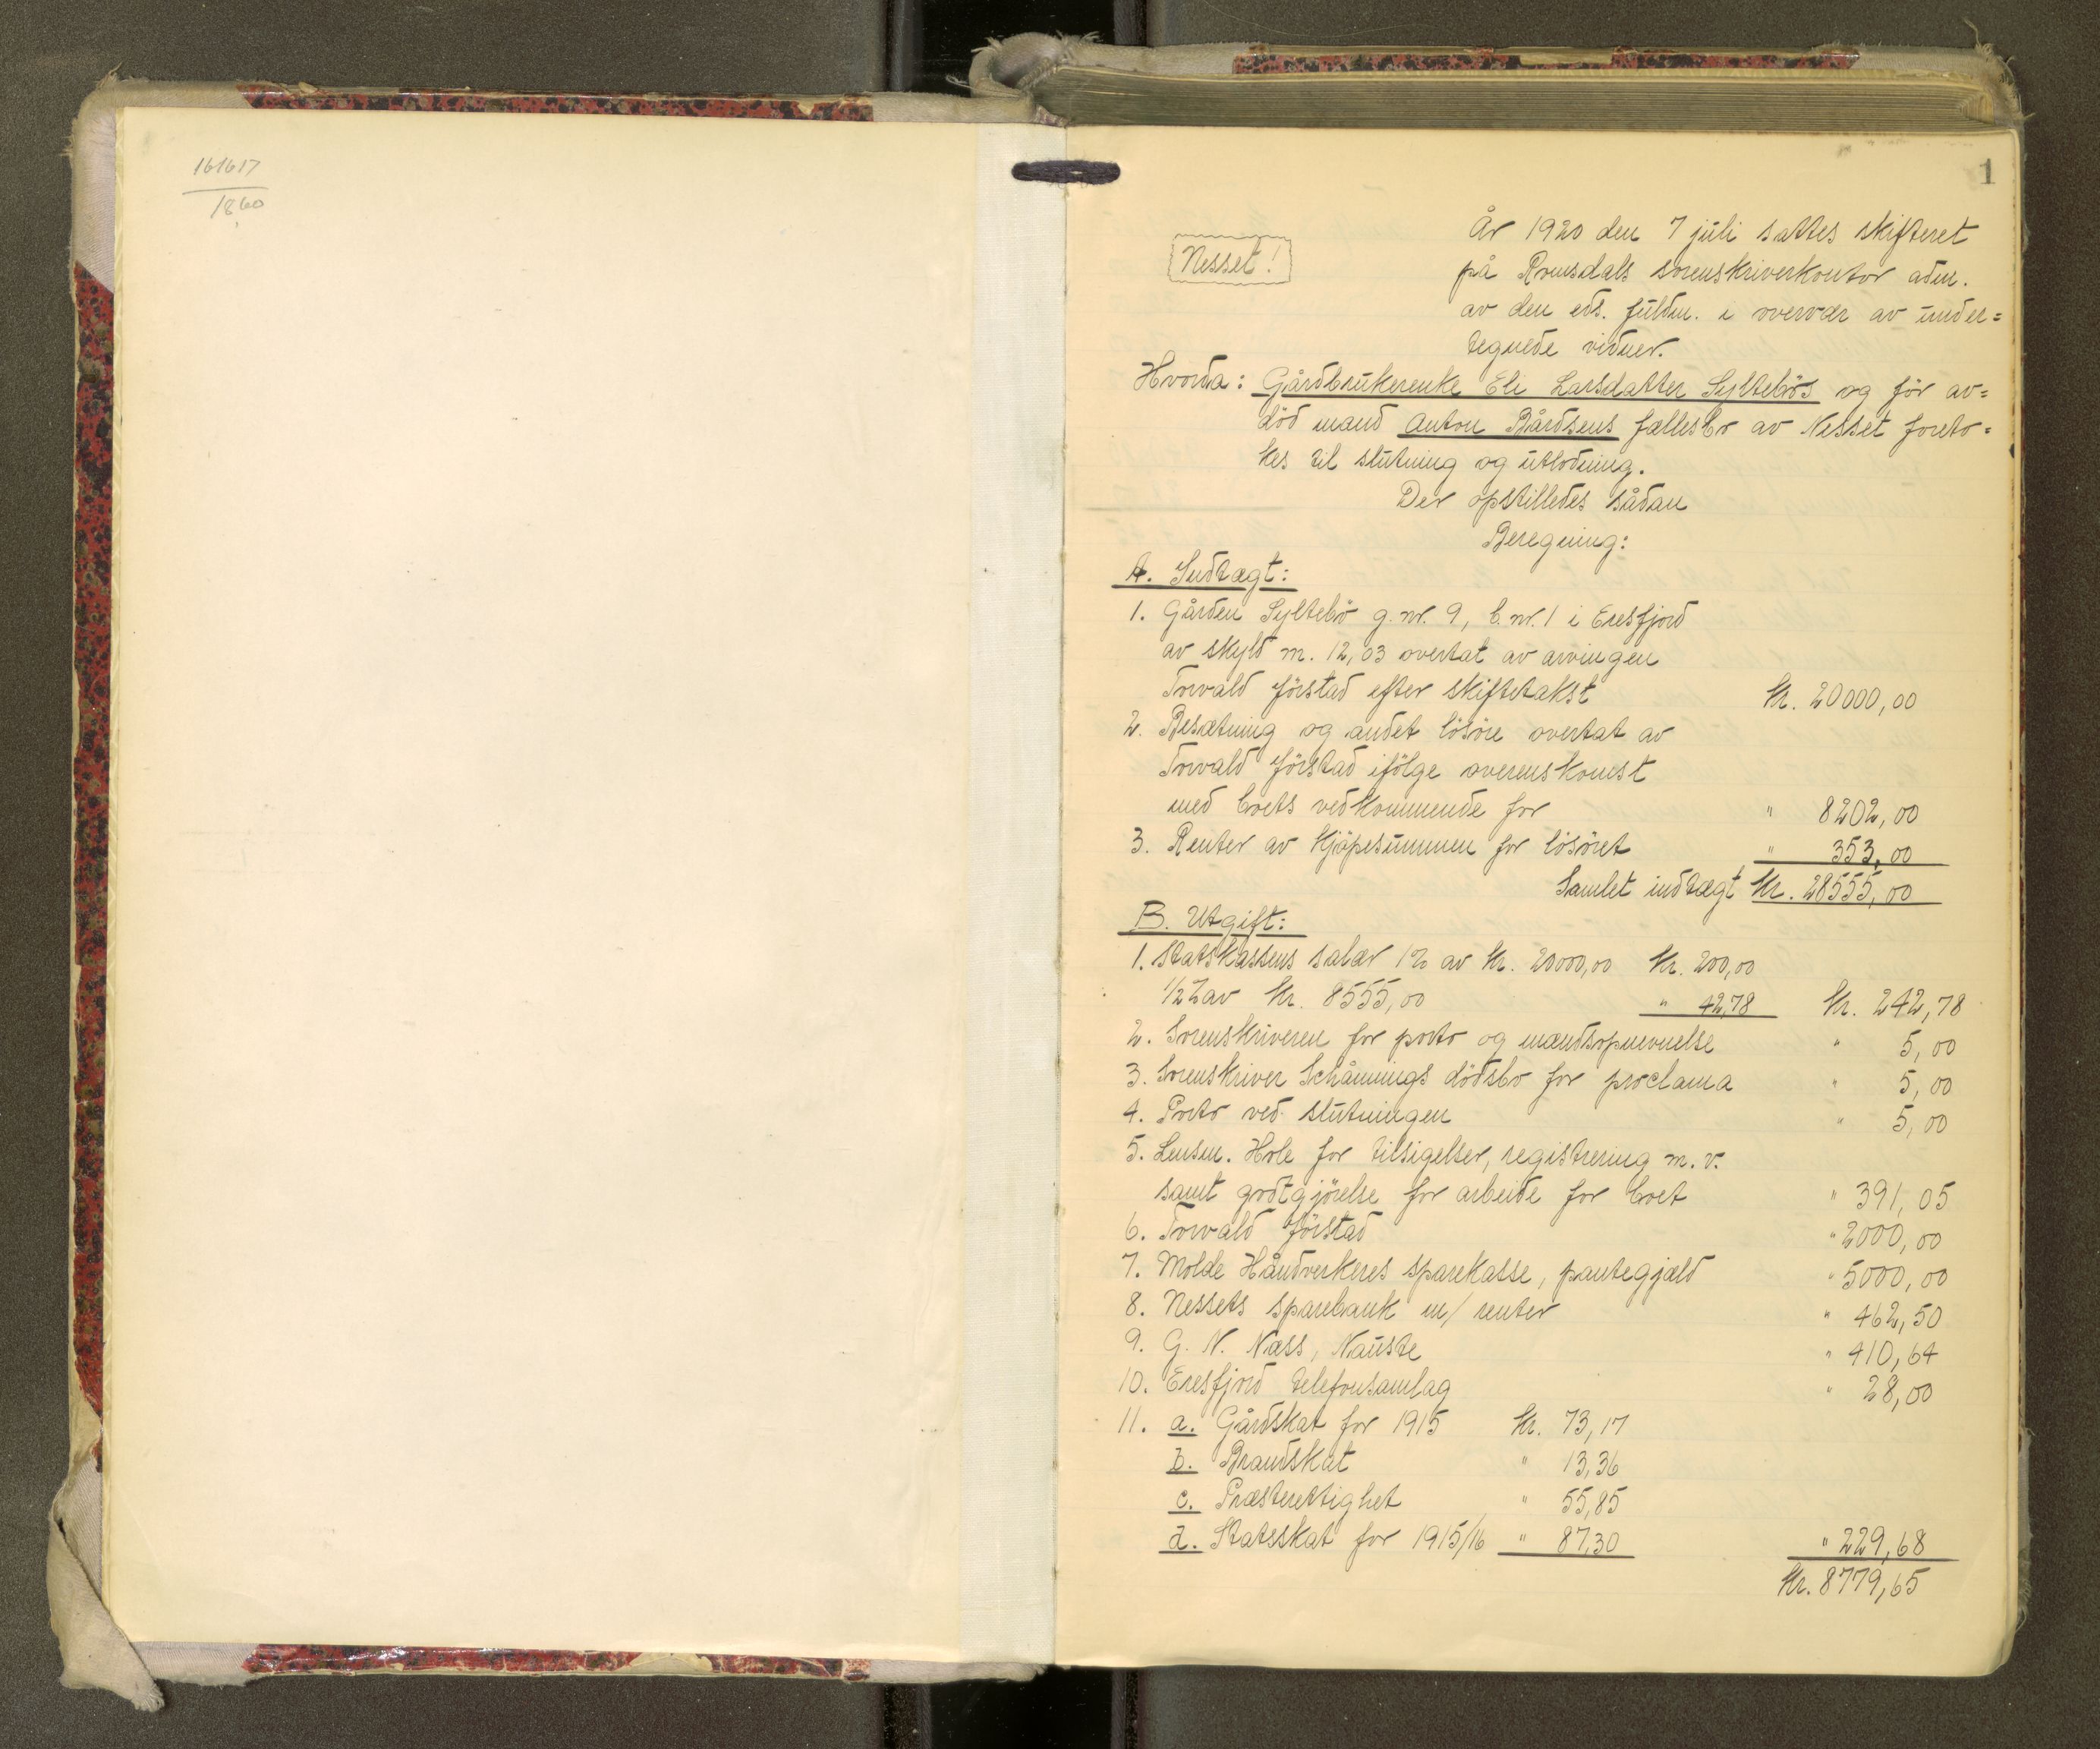 161617
1860
1
Nesset!
År 1920 den 7 juli sattes skifteret
på Romsdals sorenskriverkontor adm.
av den eds. fuldm. i overvær av under=
tegnede vidner.
Hvorda: Gårdbrukerenke Eli Larsdatter Syltebøs og før av=
død mand Anton Bårdsens fællesbo av Nesset foreto=
kes til slutning og utlodning.
Der opstilledes sådan
Beregning:
A. Indtægt:
1. Gården Syltebø g. nr. 9, b. nr. 1 i Eresfjord
av skyld m. 12,03 overtat av arvingen
Torvald Jørstad efter skiftetakst kr. 20000,00
2. Besætning og andet løsøre overtat av
Torvald Jørstad ifølge overenskomst
med boets vedkommende for " 8202,00
3. Renter av kjøpesummen for løsøret " 353,00
Samlet indtægt kr. 28555,00
B. Utgift:
1. Statskassens salær 1% av kr. 20000,00 kr. 200,00
1/2 % av kr. 8555,00 " 42,78 kr. 242,78
2. Sorenskriveren for porto og mandsopnevnelse " 5,00
3. Sorenskriver Schånnings dødsbo for proclama " 5,00
4. Porto ved slutningen " 5,00
5. Lensm. Hole for tilsigelser, registrering m. v.
samt godtgjørelse for arbeide for boet " 391,05
6. Torvald Jørstad " 2000,00
7. Molde Håndverkeres sparekasse, pantegjæld " 5000,00
8. Nessets sparebank m/ renter " 462,50
9. G. N. Næss, Nauste " 410,64
10. Eresfjord telefonsamlag " 28,00
11. a. Gårdskat for 1915 kr. 73,17
b. Brandskat " 13,36
c. Præsterettighet " 55,85
d. Statsskat for 1915/16 " 87,30 " 229,68
kr. 8779,65